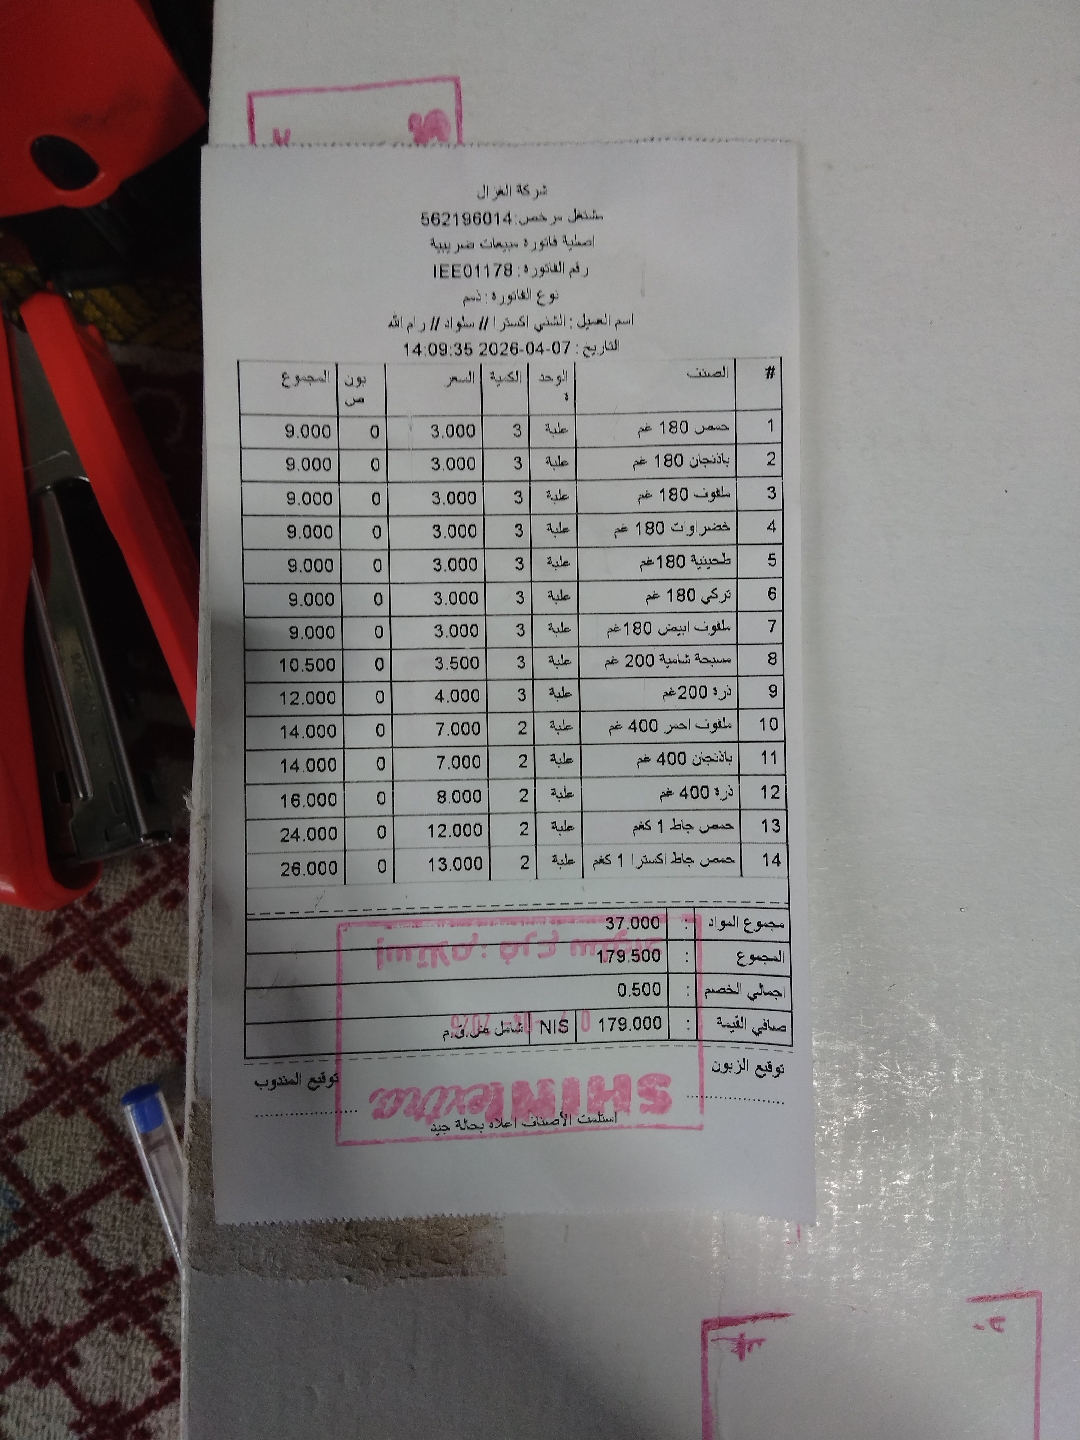 شركة الغزال
مشتغل مرخص:562196014
اصلية فاتورة مبيعات ضريبية
رقم الفاتورة : IEE01178
نوع الفاتورة : ذمم
اسم العميل : الشني اكسترا // سلواد // رام الله
التاريخ : 2026-04-07 14:09:35
# الصنف الوحدة الكمية السعر بونص المجموع
1 حمص 180 غم علبة 3 3.000 0 9.000
2 باذنجان 180 غم علبة 3 3.000 0 9.000
3 ملفوف 180 غم علبة 3 3.000 0 9.000
4 خضراوات 180 غم علبة 3 3.000 0 9.000
5 طحينية 180غم علبة 3 3.000 0 9.000
6 تركي 180 غم علبة 3 3.000 0 9.000
7 ملفوف ابيض 180غم علبة 3 3.000 0 9.000
8 مسبحة شامية 200 غم علبة 3 3.500 0 10.500
9 ذرة 200غم علبة 3 4.000 0 12.000
10 ملفوف احمر 400 غم علبة 2 7.000 0 14.000
11 باذنجان 400 غم علبة 2 7.000 0 14.000
12 ذرة 400 غم علبة 2 8.000 0 16.000
13 حمص جاط 1 كغم علبة 2 12.000 0 24.000
14 حمص جاط اكسترا 1 كغم علبة 2 13.000 0 26.000
مجموع المواد : 37.000
المجموع : 179.500
اجمالي الخصم : 0.500
صافي القيمة : 179.000 NIS شامل ض.ق.م
توقيع الزبون توقيع المندوب
استلمت الأصناف اعلاه بحالة جيد
إستلام : فرع سلواد
SHINI extra